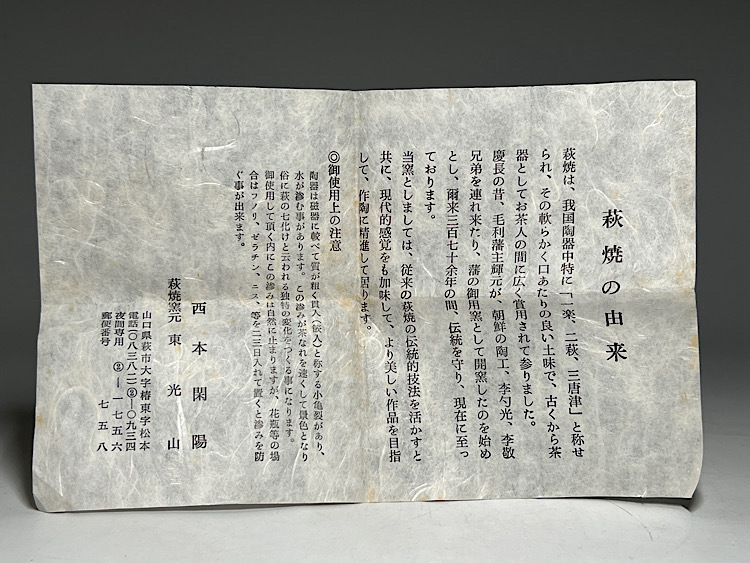 萩焼の由来
萩焼は、我国陶器中特に「一楽、二萩、三唐津」と称せ
られ、その軟らかく口あたりの良い土味で、古くから茶
器としてお茶人の間に広く賞用されて参りました。
慶長の昔、毛利藩主輝元が、朝鮮の陶工、李勺光、李敬
兄弟を連れ来たり、藩の御用窯として開窯したのを始め
とし、爾来三百七十余年の間、伝統を守り、現在に至っ
ております。
当窯としましては、従来の萩焼の伝統的技法を活かすと
共に、現代的感覚をも加味して、より美しい作品を目指
して、作陶に精進して居ります。
◎御使用上の注意
陶器は磁器に較べて質が粗く貫入(嵌入)と称する小亀裂があり、
水が滲む事があります。この滲みが茶なれを速くして景色となり
俗に萩の七化けと云われる独特の変化をつくる事になります。
御使用して頂く内にこの滲みは自然に止まりますが、花瓶等の場
合はフノリ、ゼラチン、ニス、等を二三日入れて置くと滲みを防
ぐ事が出来ます。
西本閑陽
萩焼窯元 東光山
山口県萩市大字椿東字松本
電話(〇八三八二)②―〇九三四
夜間専用 ②―一七五六
郵便番号 七五八